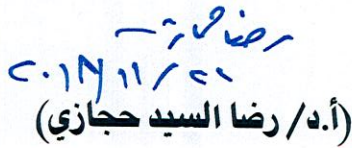 رضا حجازي
٢٠١٧/١١/٢٢
(أ.د/ رضا السيد حجازي)